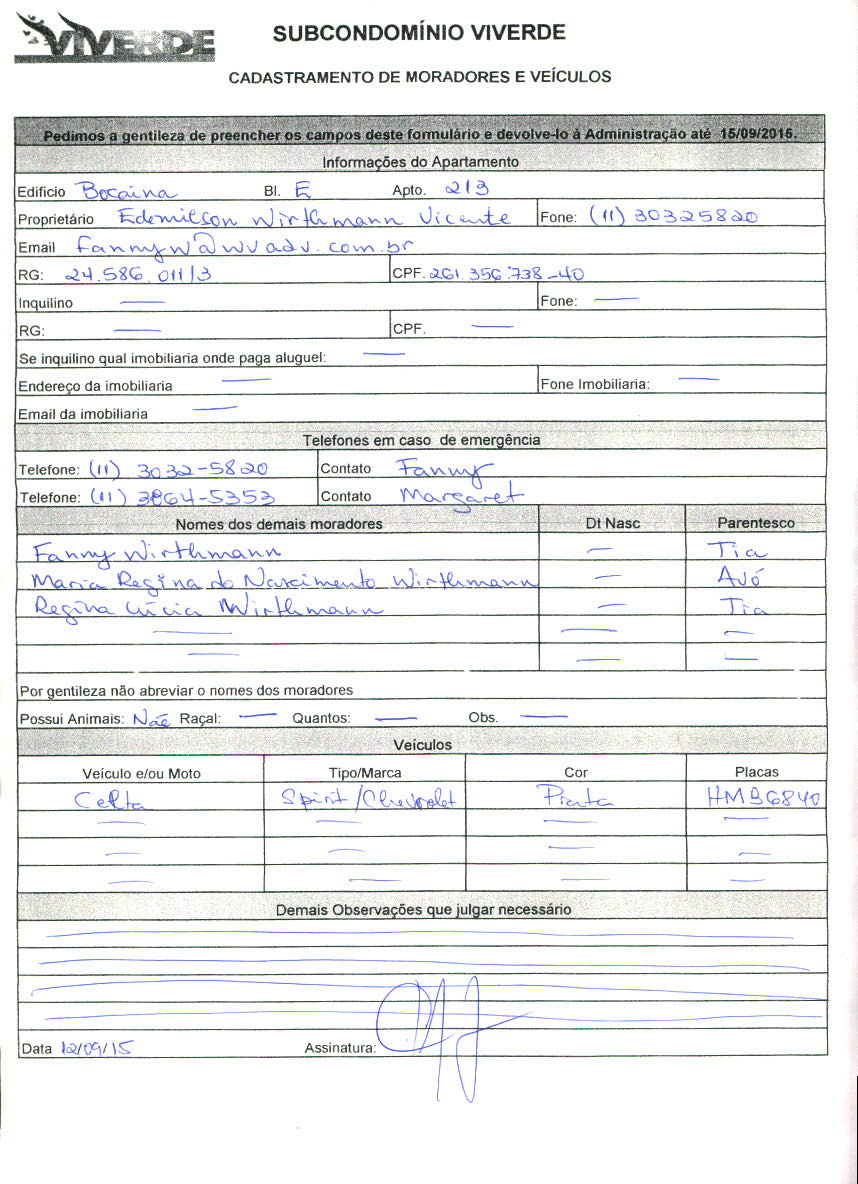 VIVERDE
SUBCONDOMÍNIO VIVERDE
CADASTRAMENTO DE MORADORES E VEÍCULOS
Pedimos a gentileza de preencher os campos deste formulário e devolve-lo à Administração até 15/09/2015.
Informações do Apartamento
Edificio Bocaina Bl. E Apto. 213
Proprietário Edemilson Wirthmann Vicente Fone: (11) 30325820
Email fannyw@wvadv.com.br
RG: 24.586.011/3 CPF. 261.356.738-40
Inquilino — Fone: —
RG: — CPF. —
Se inquilino qual imobiliaria onde paga aluguel: —
Endereço da imobiliaria — Fone Imobiliaria: —
Email da imobiliaria —
Telefones em caso de emergência
Telefone: (11) 3032-5820 Contato Fanny
Telefone: (11) 3864-5353 Contato Margaret
Nomes dos demais moradores Dt Nasc Parentesco
Fanny Wirthmann — Tia
Maria Regina do Nascimento Wirthmann — Avó
Regina Lúcia Wirthmann — Tia
— — —
— — —
Por gentileza não abreviar o nomes dos moradores
Possui Animais: Não Raçal: — Quantos: — Obs. —
Veículos
Veículo e/ou Moto Tipo/Marca Cor Placas
Celta Spirit/Chevrolet Prata HMB6840
— — — —
— — — —
— — — —
Demais Observações que julgar necessário
Data 12/09/15 Assinatura: